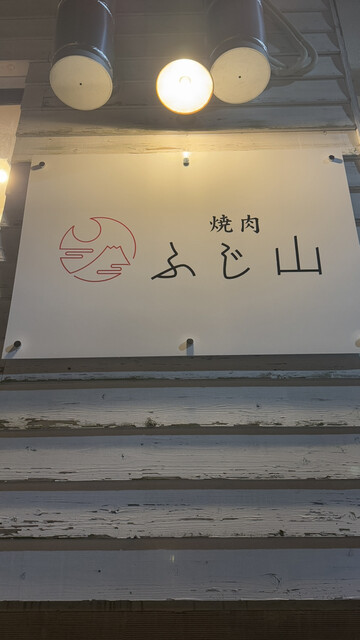 焼肉
ふじ山